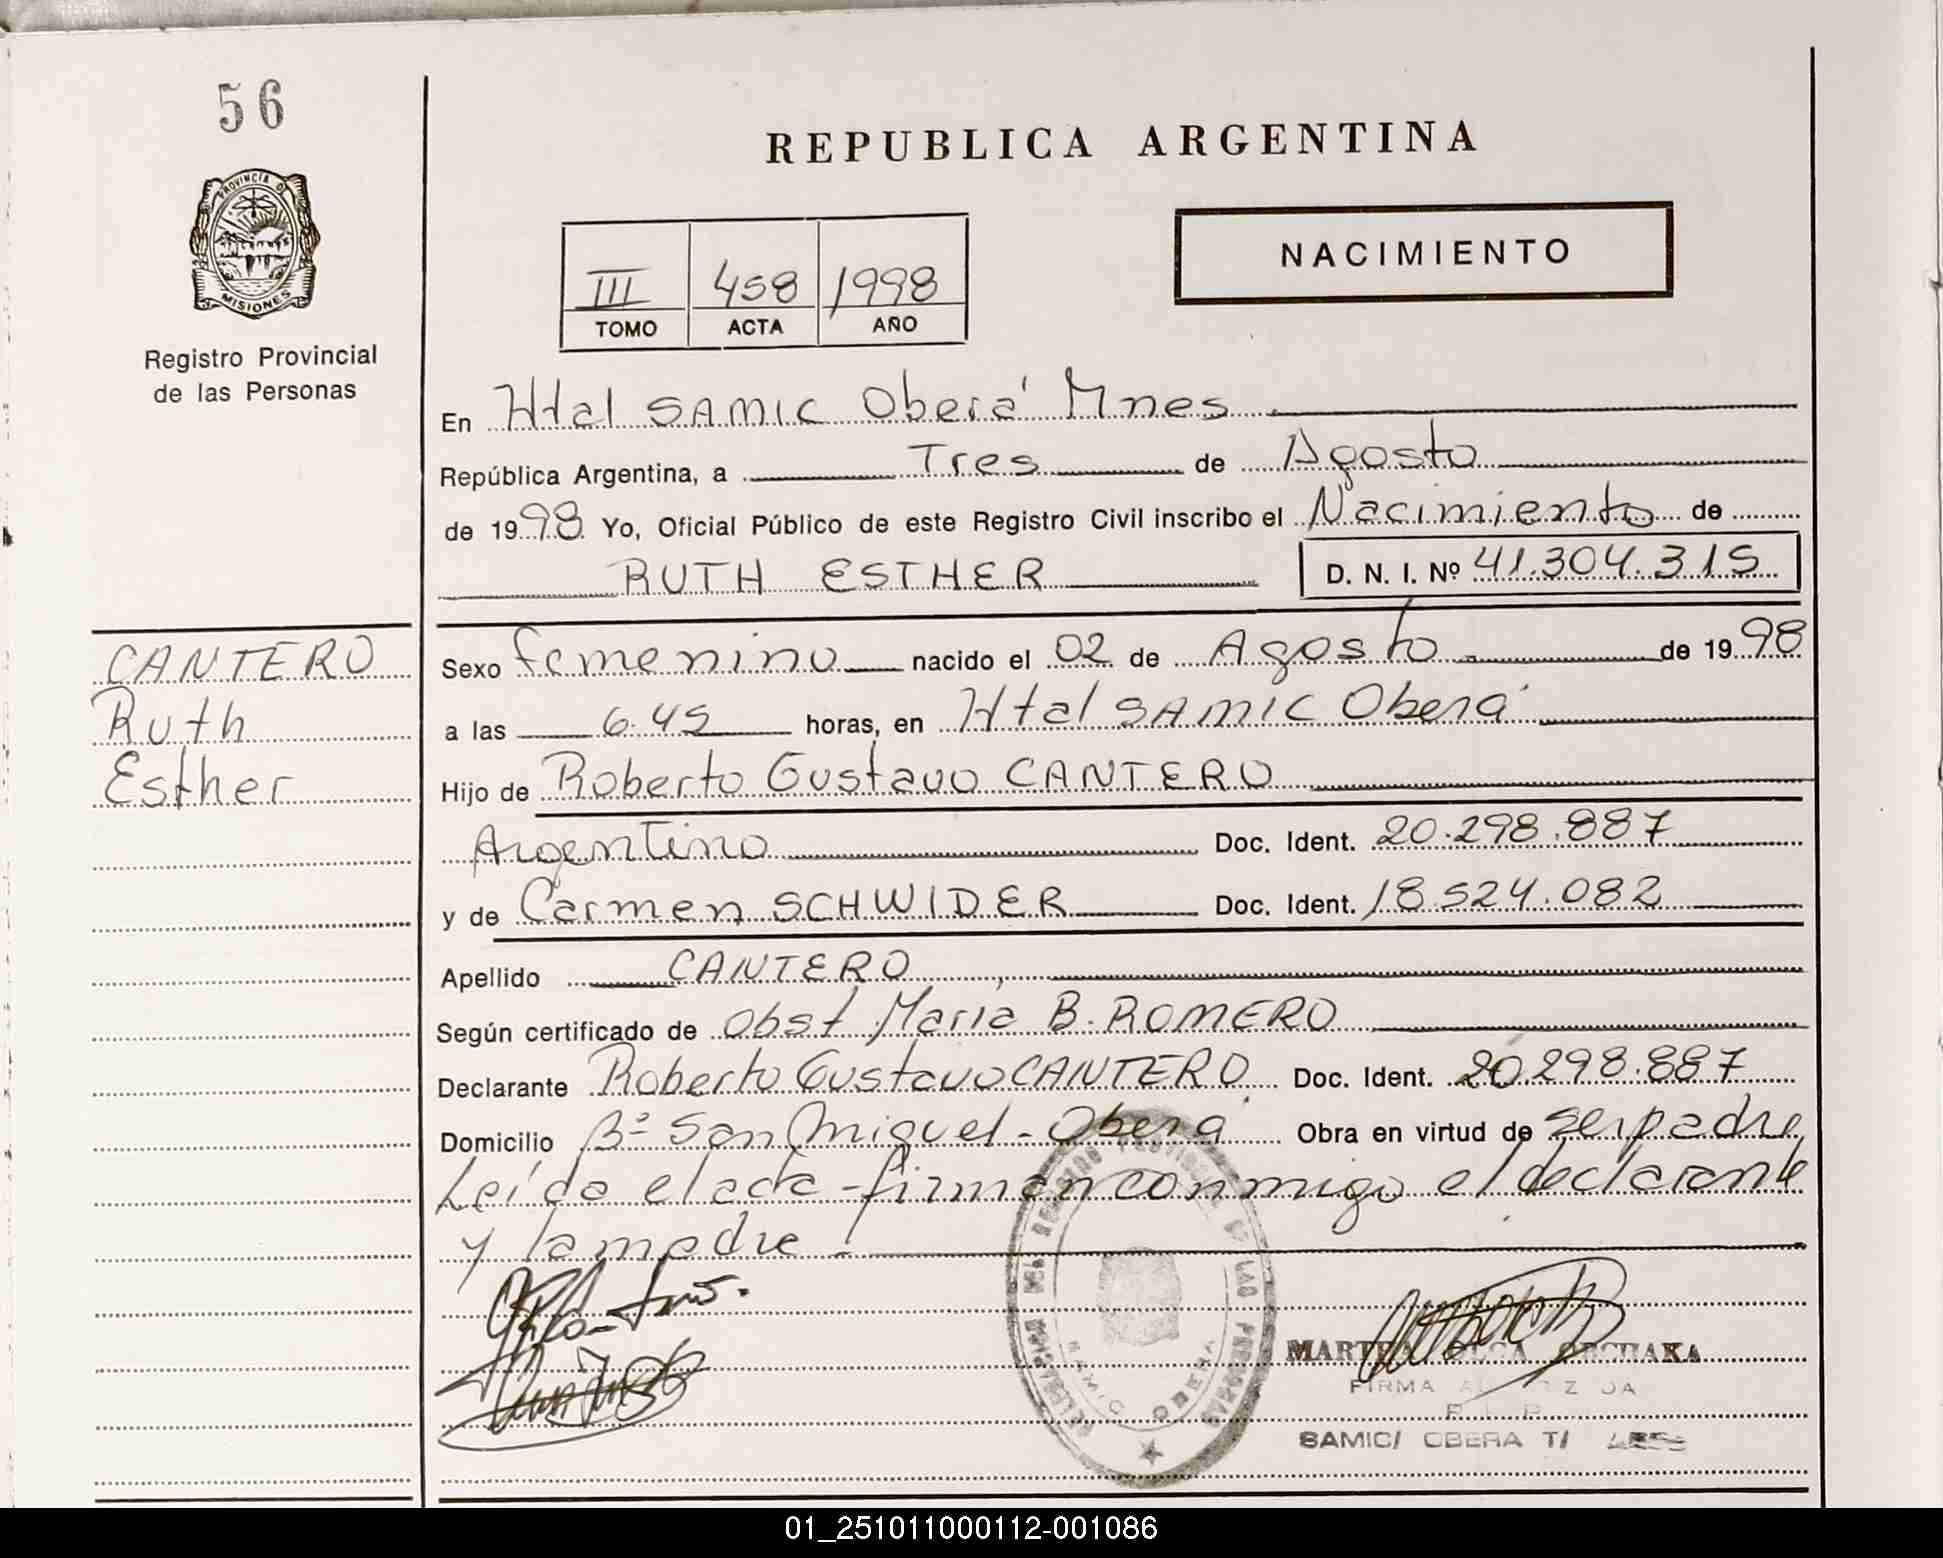 56
REPUBLICA ARGENTINA
PROVINCIA DE
MISIONES
Registro Provincial
de las Personas
III 458 1998
TOMO ACTA AÑO
NACIMIENTO
En Htal SAMIC Oberá Mnes
República Argentina, a Tres de Agosto
de 1998 Yo, Oficial Público de este Registro Civil inscribo el Nacimiento de
RUTH ESTHER D. N. I. Nº 41.304.315
CANTERO
Ruth
Esther
Sexo femenino nacido el 02 de Agosto de 1998
a las 6.45 horas, en Htal SAMIC Oberá
Hijo de Roberto Gustavo CANTERO
Argentino Doc. Ident. 20.298.887
y de Carmen SCHWIDER Doc. Ident. 18.524.082
Apellido CANTERO
Según certificado de Obst Maria B. ROMERO
Declarante Roberto Gustavo CANTERO Doc. Ident. 20.298.887
Domicilio Bº San Miguel - Oberá Obra en virtud de ser padre
Leída el acta - firman conmigo el declarante
y la madre.
MARTHA OLGA
FIRMA
SAMIC/ OBERA T/
SAMIC OBERA
01_251011000112-001086